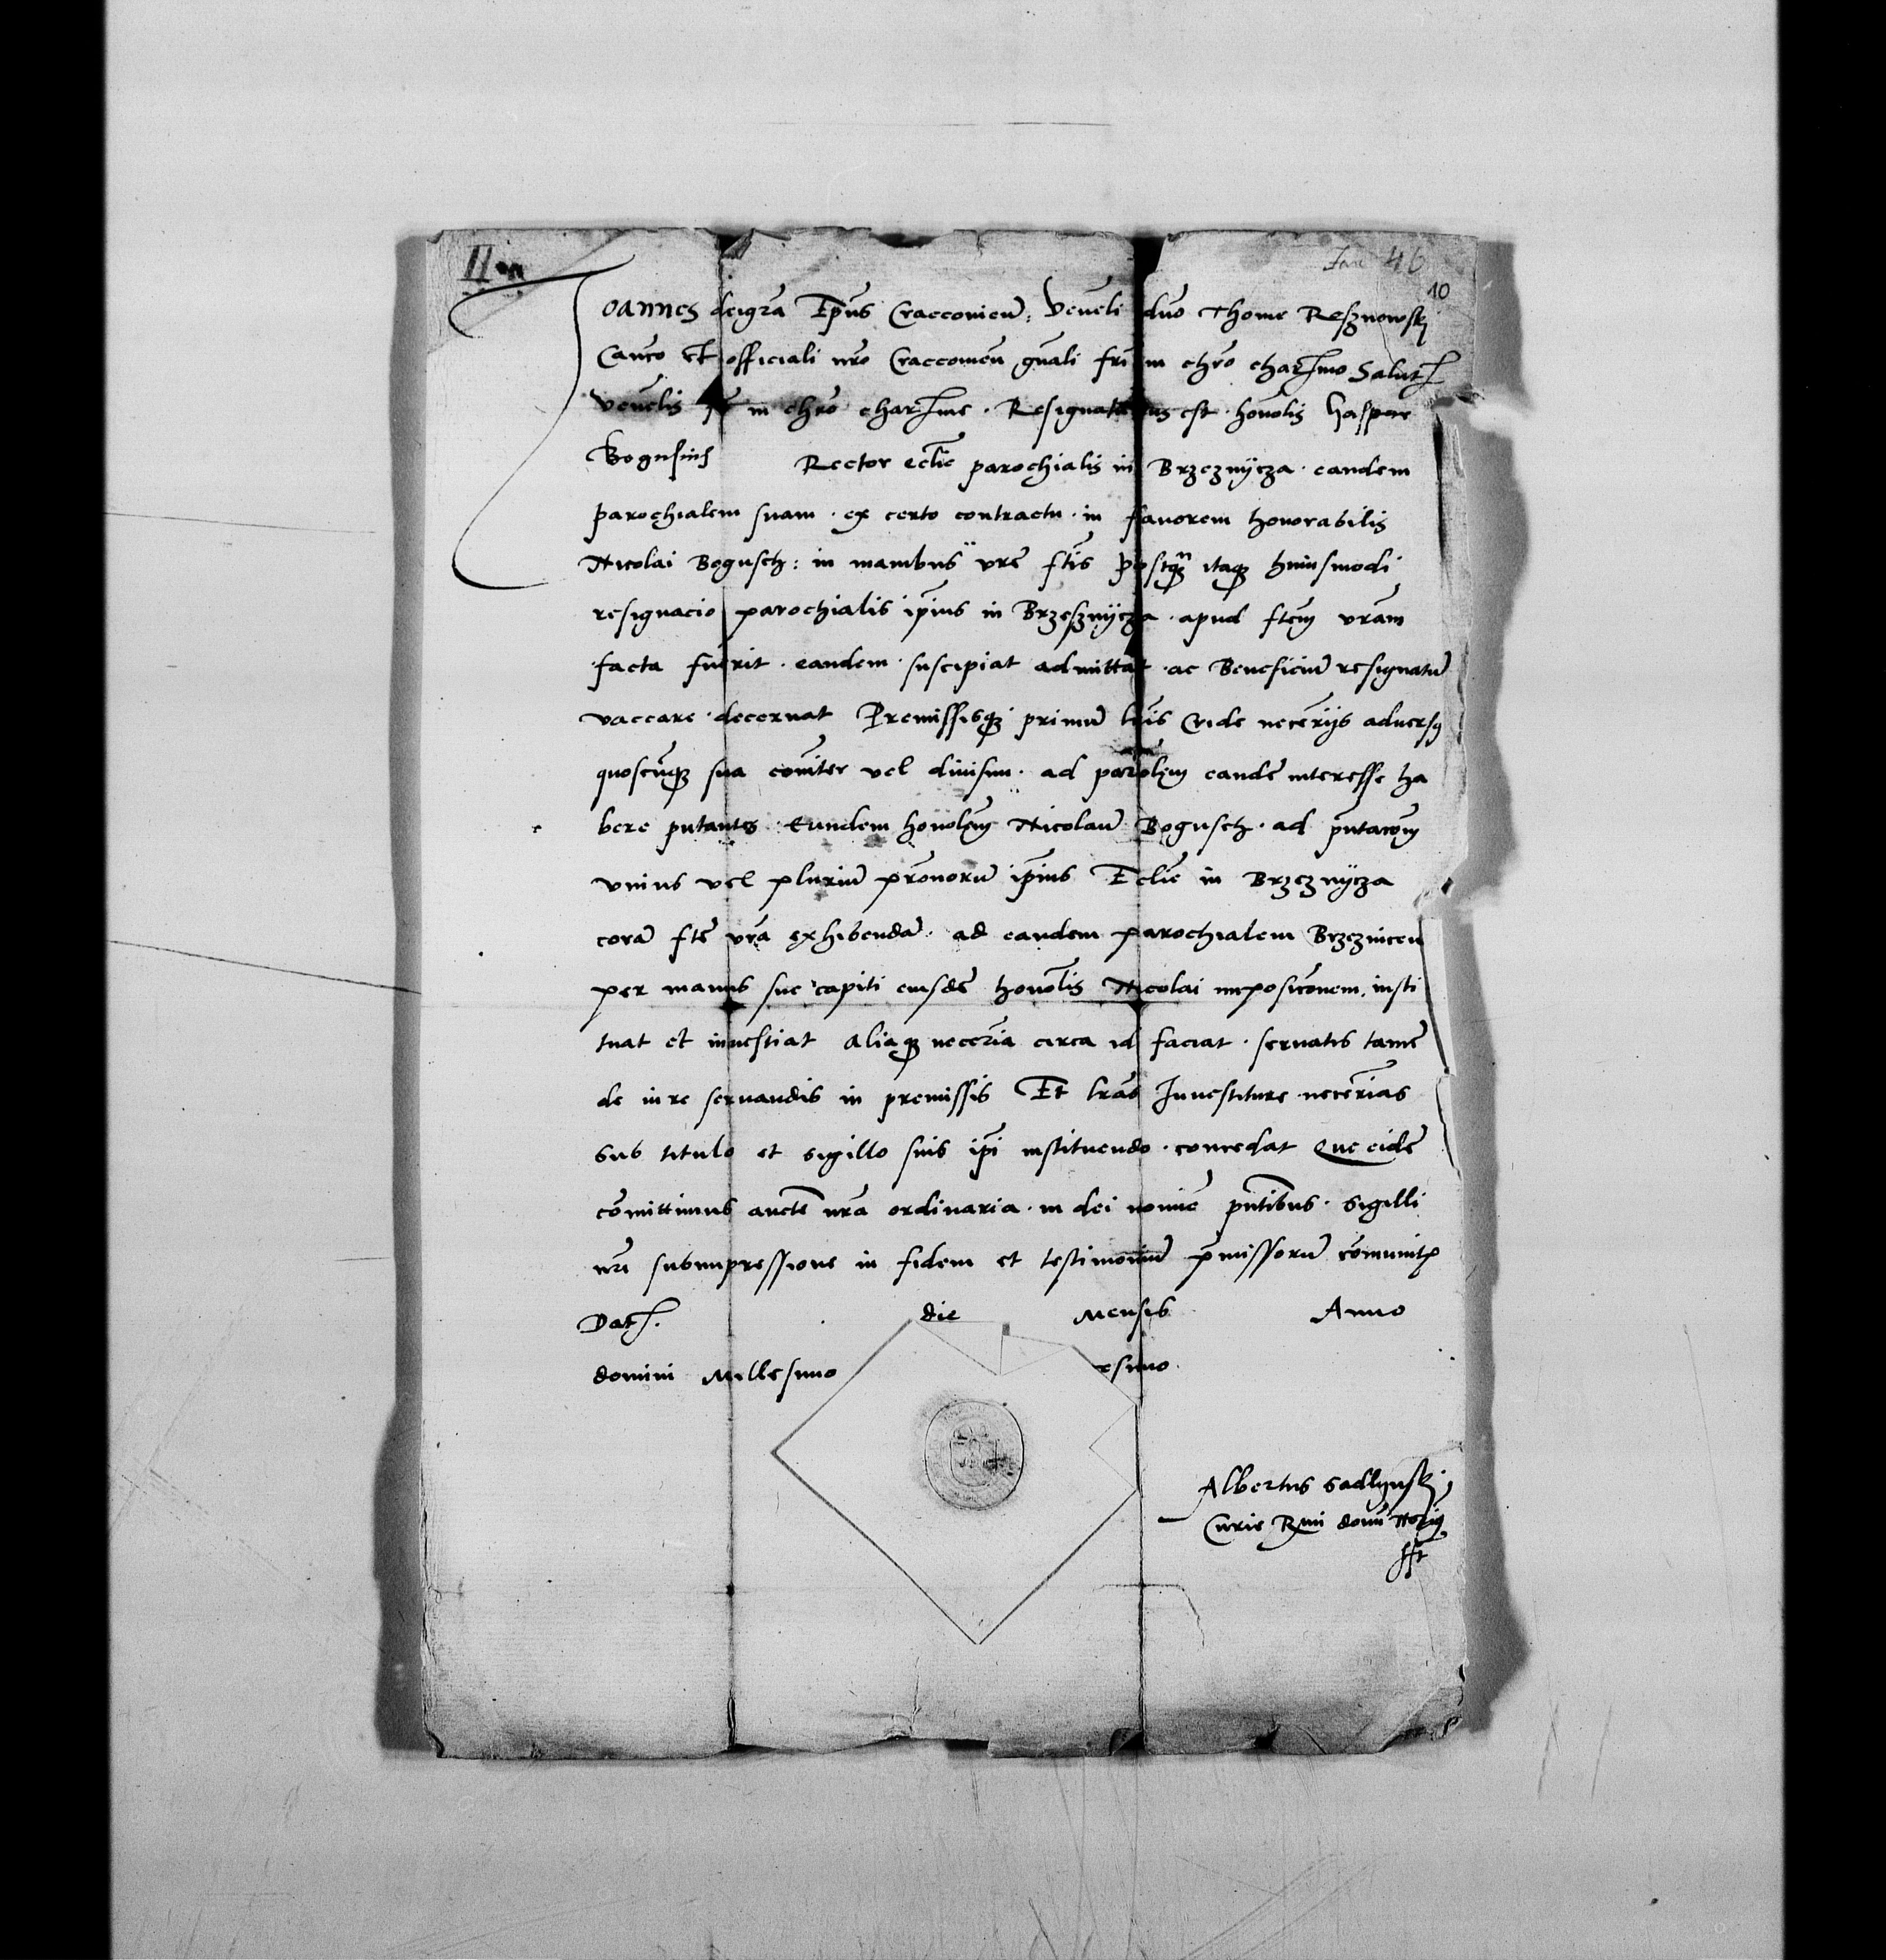 II
Jan 46
10
Joannes deigrã Ep̃us Craccovieñ: Veñeli dño Thome Resznowskj
Canco et officiali nr̃o Craccovieñ gñali fri in chrõ charmo Salut
Veñelis in chrõ charme. Resignaturus est. honolis Gaspar
Bogusius Rector eclie parochialis in Brzeznÿcza. eandem
parochialem suam. ex certo contractu. in favorem honorabilis
Nicolai Bogusch: in manibus vrẽ ftis postq̃ itaq huiusmodi
resignacio parochialis ipius in Brzesznÿcza. apud ftem vram
facta fuerit. eandem. suscipiat admittat. ac Beneficiũ resignatũ
vaccare. decernat Premissisq primũ lris Cride necerijs adversq
quoscũq sua coniter vel divisim. ad parolem eandẽ interesse ha
bere putantes. Eundem honolem Nicolaũ Bogusch. ad pñtacõem
vnius vel pluriũ pronorũ ipius Eclie in Brzeznÿcza
corã ftẽ vrã exhibendã. ad eandem parochialem Brzezniceñ
per manus sue capiti eiusdẽ honolis Nicolai imposicõnem. insti
tuat et investiat aliaq neceria circa id faciat. servatis tamẽ
de iure servandis in premissis Et lras Investiture necerias
sub titulo et sigillo suis ipi instituendo. concedat Que eidẽ
cõmittimus aucte nrã ordinaria. in dei nom̃ie pñtibus. sigilli
nri subimpressione in fidem et testimoniũ pmissorũ cõmunitp
Dat. die Mensis Anno
domini Millesimo esimo.
Albertus Sadlynskj
Curie Rmi domi Nory
sst